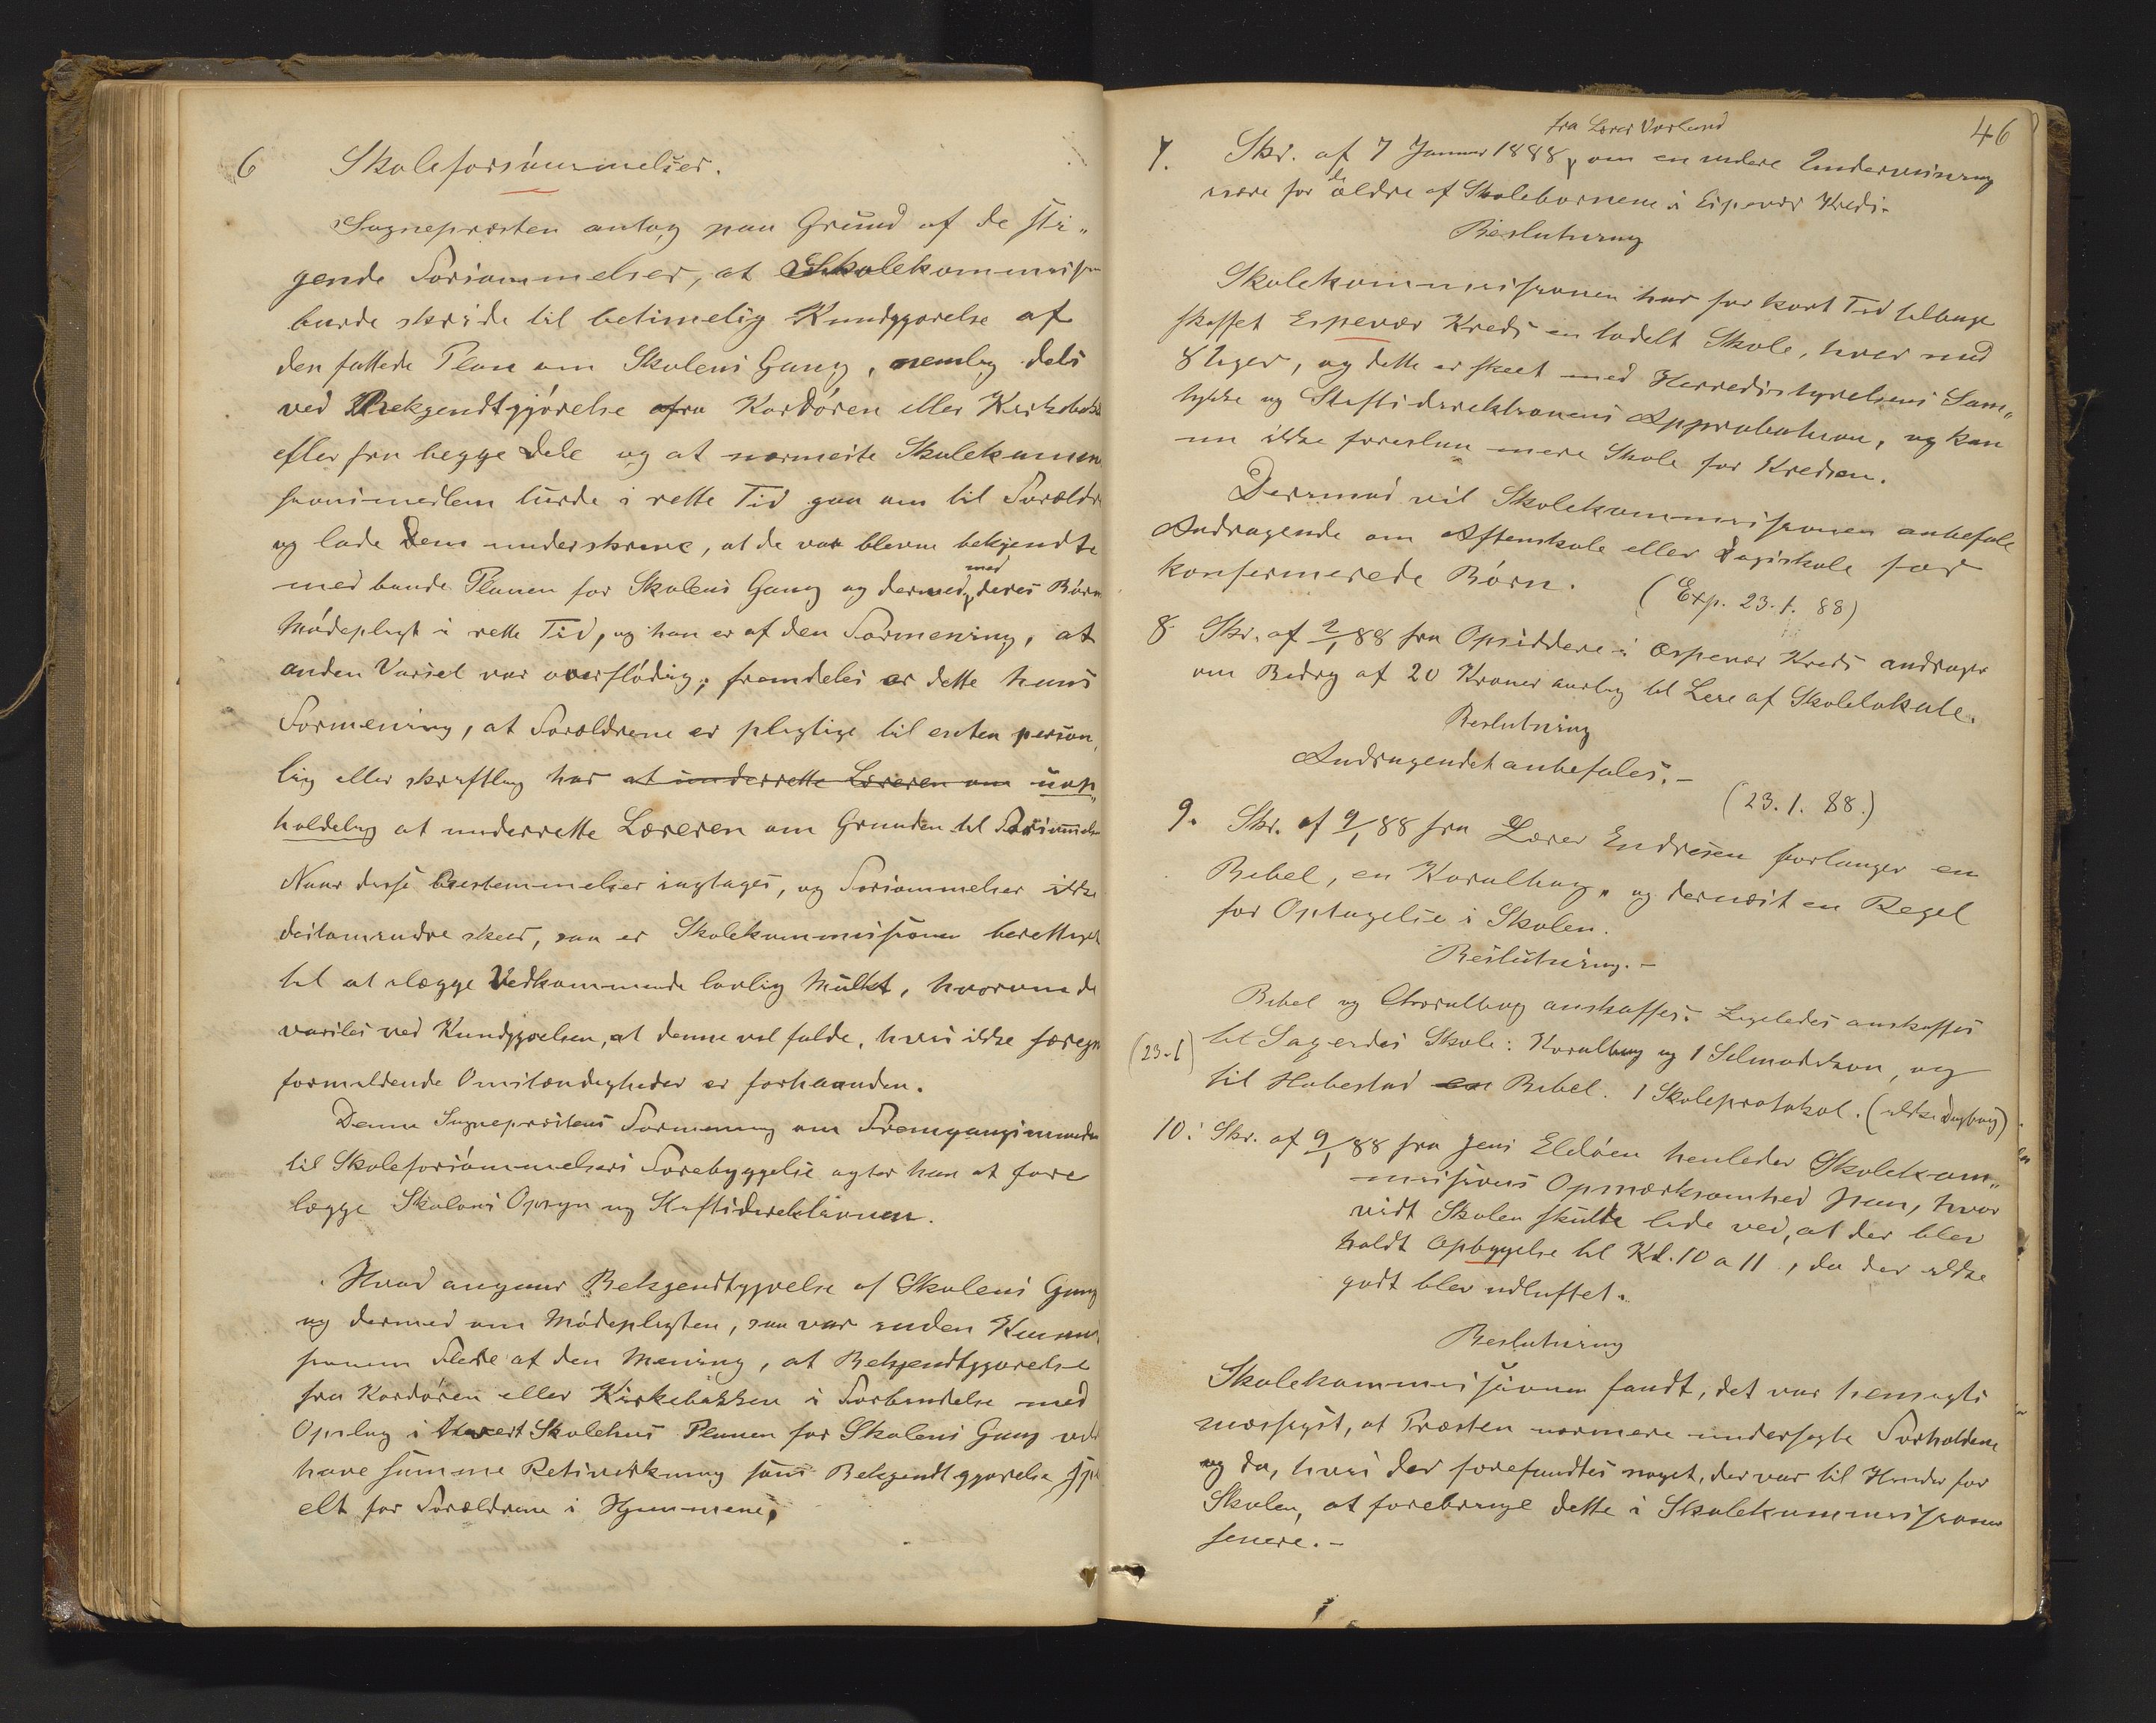 6 Skoleforsömmelser.
Sognepræsten antog paa Grund af de sti„
gende Forsømmelser, at Skolekommissi
burde skride til betimelig Kundgjørelse af
den fattede Plan om Skolens Gang, nemlig dels
ved Bekjendtgjørelse fra Kordøren eller Kirkebak
eller fra begge Dele og at nærmeste Skolekommi
sionsmedlem burde i rette Tid gaa om til Forældr
og lade Dem underskrive, at de var blevne bekjendte
med baade Planen for Skolens Gang og dermed med deres Børn
Mødepligt i rette Tid, og han er af den Formening, at
anden Varsel var overflødig; fremdeles er dette hans
Formening, at Forældrene er pligtige til enten person„
lig eller skriftlig har at underrette Læreren om uop„
holdelig at underrette Læreren om Grunden til Forsømmelse
Naar disse Bestemmelser iagtages, og Forsømmelser ikke
destomindre skeer, saa er Skolekommissionen berettiget
til at ilægge Vedkommende lovlig Mulkt, hvorom de
varsles ved Kundgjøelsen, at denne vil falde, hvis ikke særegn
formildende Omstændigheder er forhaanden.
Denne Sognepræstens Formening om Fremgangsmaaden
til Skoleforsømmelsers Forebyggelse agter han at fore
lægge Skolens Opsyn og Stiftsdirektionen.
Hvad angaar Bekjendtgjørelse af Skolens Gang
og dermed om Mødepligten, saa var inden Kommi
sionen Flere af den Mening, at Bekjendtgjørelse
fra Kordøren eller Kirkebakken i Forbindelse med
Opslag i hvert Skolehus Planen for Skolens Gang vil
have samme Retsvirkning som Bekjendtgjørelse spe
elt for Forældrene i Hjemmene.
46
fra Lærer Vorland
7. Skr. af 7 Januar 1888, om en videre Undervisning
være for de ældre af Skolebørnene i Espevær Kreds.
Beslutning
Skolekommissionen har for kort Tid tilbage
skaffet Espevær Kreds en todelt Skole, hver med
8 Uger, og dette er skeet med Herredsstyrelsens Sam„
tykke og Stiftsdirektionens Approbation, og kan
nu ikke foreslaa mere Skole for Kredsen.
Derimod vil Skolekommissionen anbefale
Andragende om Aftenskole eller Dagskole for
konfirmerede Børn. (Exp. 23.1. 88)
8 Skr. af 2/1 88 fra Opsiddere i Æspevær Kreds andrager
om Bidrag af 20 Kroner aarlig til Leie af Skolelokale.
Beslutning
Andragendet anbefales. –
(23. 1. 88.)
9. Skr. af 9/1 88 fra Lærer Endresen forlanger en
Bibel, en Koralbog„ og dernæst en Regel
for Optagelse i Skolen.
Beslutning. –
Bibel og Choralbog anskaffes. Ligeledes anskaffes
(23.1) til Sagerdes Skole: Koralbog og 1 Selmodikon, og
til Hobestad en Bibel. 1 Skoleprotokol. (ikke Dagbog)
10. Skr. af 9/1 88 fra Jens Eldøen henleder Skolekom„
missions Opmærksomhed paa, hvor
vidt Skolen skulde lide ved, at der blev
holdt Opbyggelse til Kl. 10 a 11, da der ikke
godt blev udluftet.
Beslutning
Skolekommissionen fandt, det var hensigts
mæssigst, at Præsten nærmere undersøgte Forholdene
og da, hvis der forefandtes noget, der var til Hinder for
Skolen, at forebringe dette i Skolekommissionen
senere. –